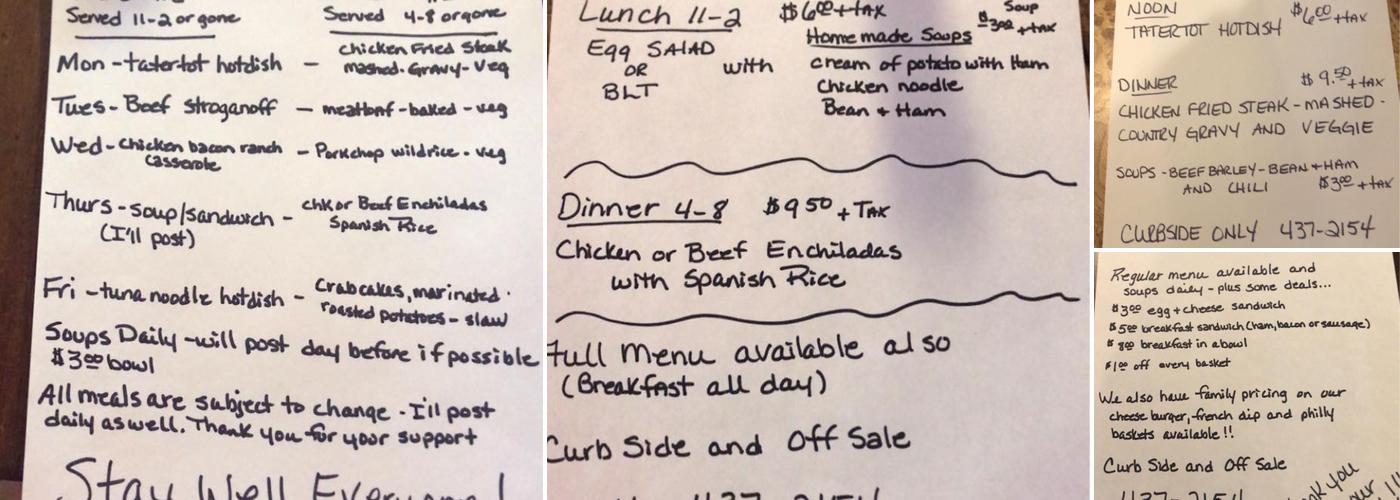 Served 11-2 or gone
Served 4-8 or gone
Mon - tatertot hotdish - Chicken Fried Steak
mashed - Gravy - Veg
Tues - Beef Stroganoff - meatloaf - baked - veg
Wed - Chicken bacon ranch
casserole - Porkchop wildrice - veg
Thurs - soup/sandwich - chk or Beef Enchiladas
(I'll post) Spanish Rice
Fri - tuna noodle hotdish - Crabcakes, marinated
roasted potatoes - slaw
Soups Daily - will post day before if possible
$3.00 bowl
All meals are subject to change. I'll post
daily as well. Thank you for your support
Stay Well Everyone!
Lunch 11-2 $6.00 + tax
Soup
$3.00 + tax
Egg SALAD
OR
BLT
with
Homemade Soups
cream of potato with Ham
Chicken noodle
Bean + Ham
Dinner 4-8 $9.50 + Tax
Chicken or Beef Enchiladas
with Spanish Rice
Full Menu available also
(Breakfast all day)
Curb Side and Off Sale
437-2154
NOON $6.00 + tax
TATERTOT HOTDISH
DINNER $9.50 + tax
CHICKEN FRIED STEAK - MASHED -
COUNTRY GRAVY AND VEGGIE
SOUPS - BEEF BARLEY - BEAN + HAM
AND CHILI $3.00 + tax
CURBSIDE ONLY 437-2154
Regular menu available and
soups daily - plus some deals...
$3.00 egg + cheese sandwich
$5.00 breakfast sandwich (ham, bacon or sausage)
breakfast in a bowl
$1.00 off every basket
We also have family pricing on our
cheeseburger, french dip and philly
baskets available!!
Curb Side and Off Sale
437-2154